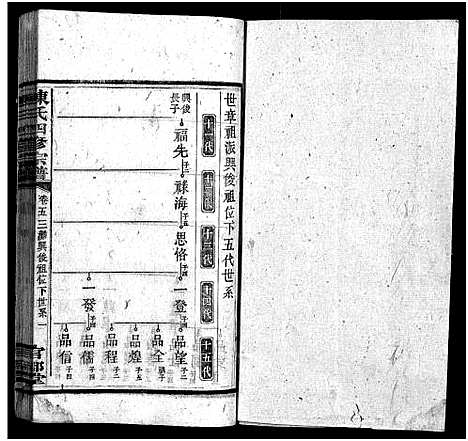 世章祖派興後祖位下五代世系
十一代
十二代
十三代
十四代
十五代
興後
長子
福先
祿海
思恪
一登
一發
品望
品全
品煌
品程
品儒
品信
陳氏四修宗譜
卷五三派興後祖位下世系
一